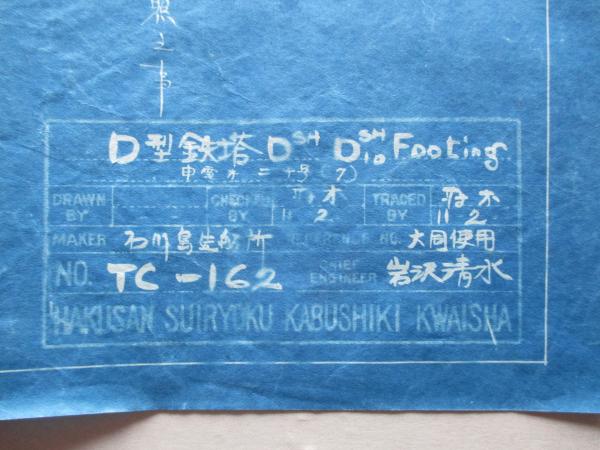 照之事
D型鉄塔 D SH D SH 10 Footing
申電才二十号(7)
DRAWN BY CHECKED BY 11 2 TRACED BY 11 2
MAKER 石川島造船所 REFERENCE NO. 大同使用
NO. TC-162 CHIEF ENGINEER 岩沢清水
HAKUSAN SUIRYOKU KABUSHIKI KWAISHA